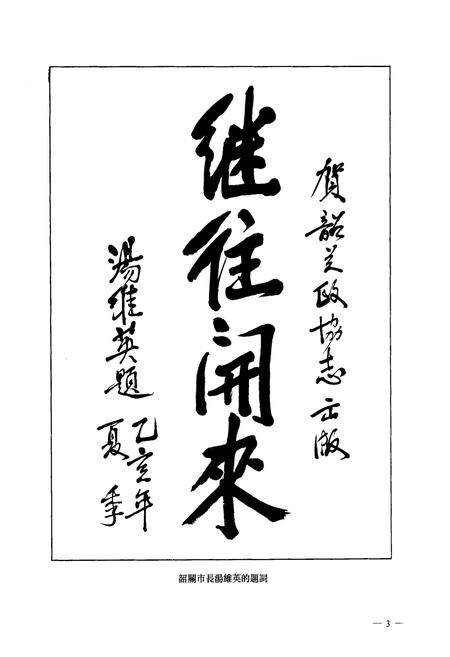 贺韶关政协志出版
继往开來
湯維英題
乙亥年
夏季
韶關市長湯維英的題詞
— 3 —